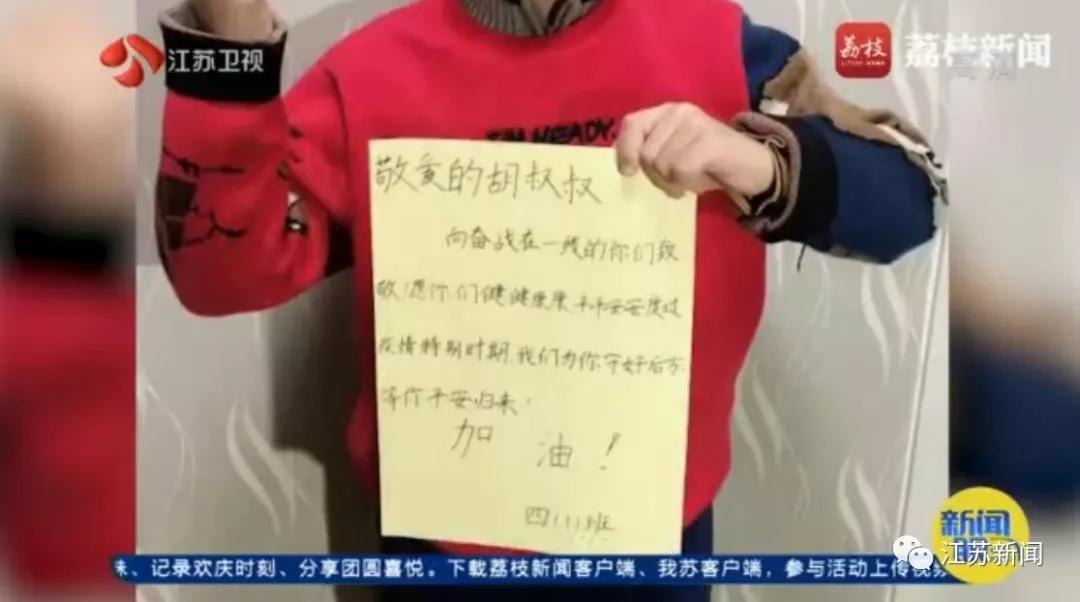 江苏卫视
荔枝
荔枝新闻
I'M READY.
敬爱的胡叔叔
向奋战在一线的你们致
敬!愿你们健健康康、平平安安度过
疫情特别时期,我们为你守好后方,
等你平安归来!
加 油!
四(1)班
新闻
江苏新闻
、记录欢庆时刻、分享团圆喜悦。下载荔枝新闻客户端、我苏客户端,参与活动上传视频